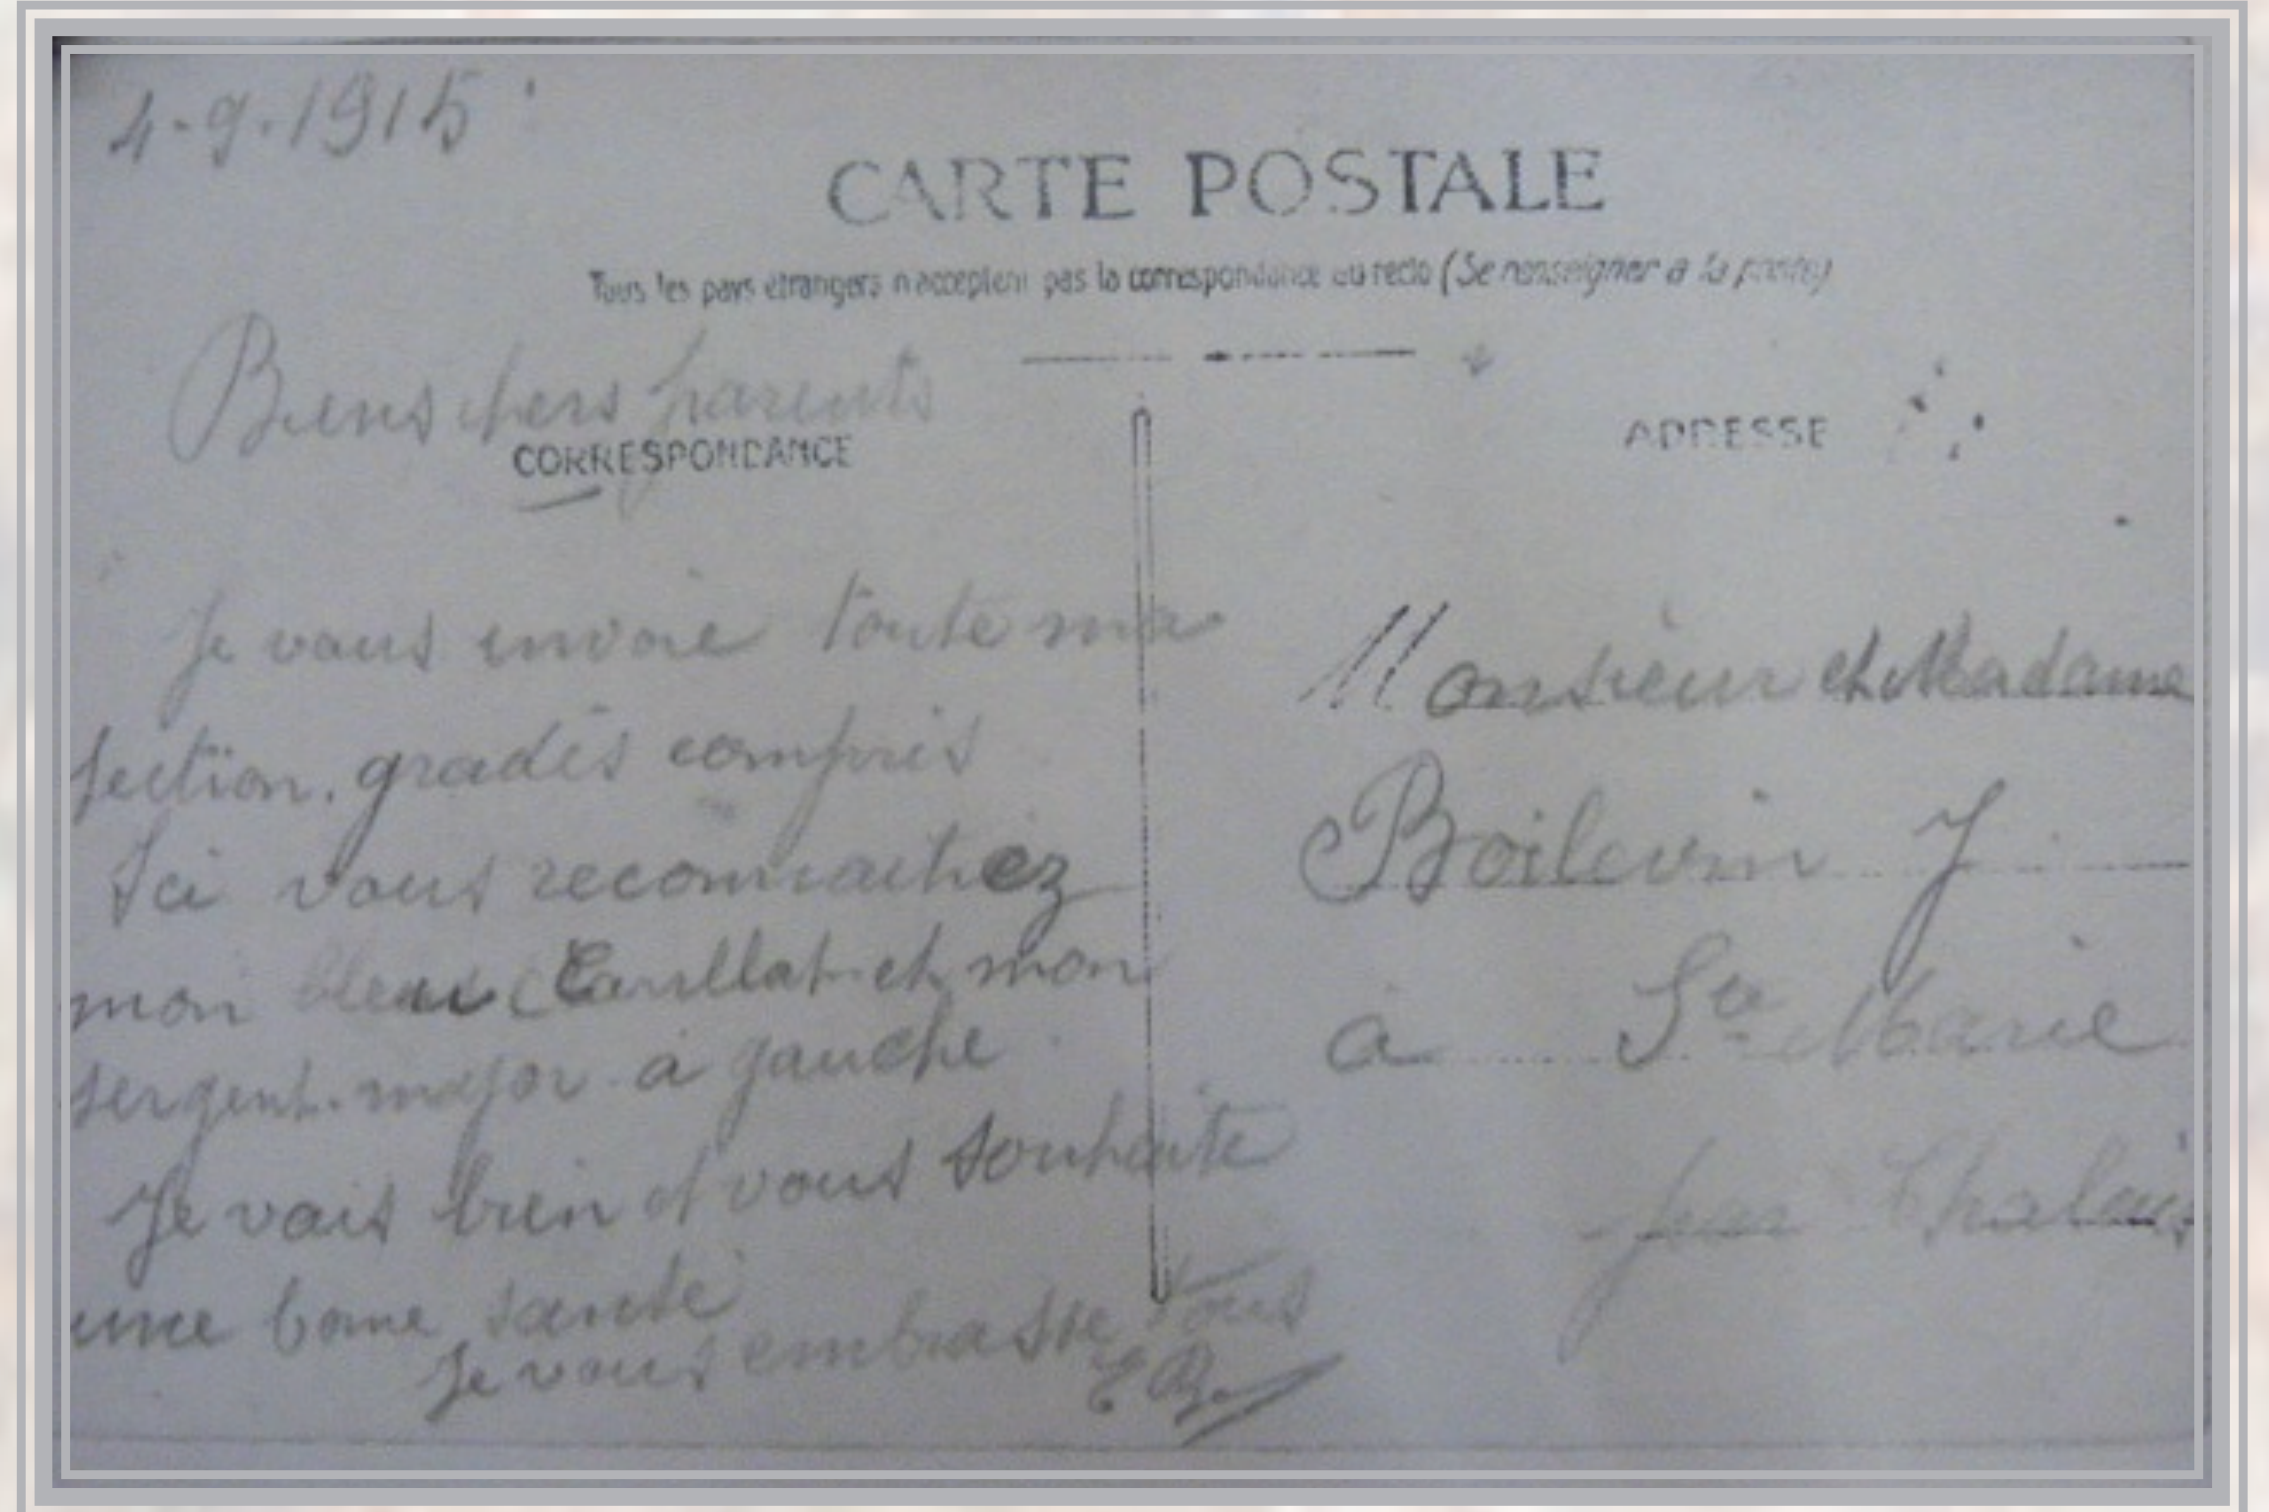 4-9-1915
CARTE POSTALE
Tous les pays étrangers n'acceptent pas la correspondance au recto (Se renseigner à la poste)
Biens chers parents
CORRESPONDANCE
ADRESSE
Je vous envoie toute ma
section. gradés compris
Sci vous reconnaitrez
mon bleu et mon
sergent-major à gauche
Je vais bien et vous souhaite
une bonne santé
Je vous embrasse tous
EB
Monsieur et Madame
Boilevin J
à Ste Marie
par Chalais